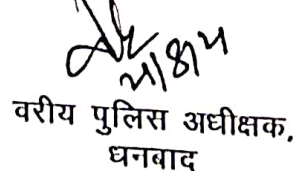 वरीय पुलिस अधीक्षक,
धनबाद